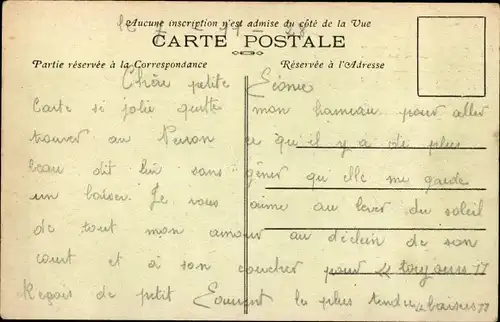 Aucune inscription n'est admise du côté de la Vue
CARTE POSTALE
Partie réservée à la Correspondance
Réservée à l'Adresse
petite
Carte si jolie quitte mon hameau pour aller
trouver au ce qu'il y a de plus
beau dit lui sans gêner qu'elle me garde
un baiser. Je vous aime au lever du soleil
de tout mon amour au déclin de son
court et à son coucher pour toujours
Reçois de petit le plus tendre baisers